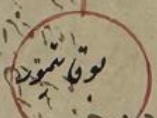 بوقا تیمور